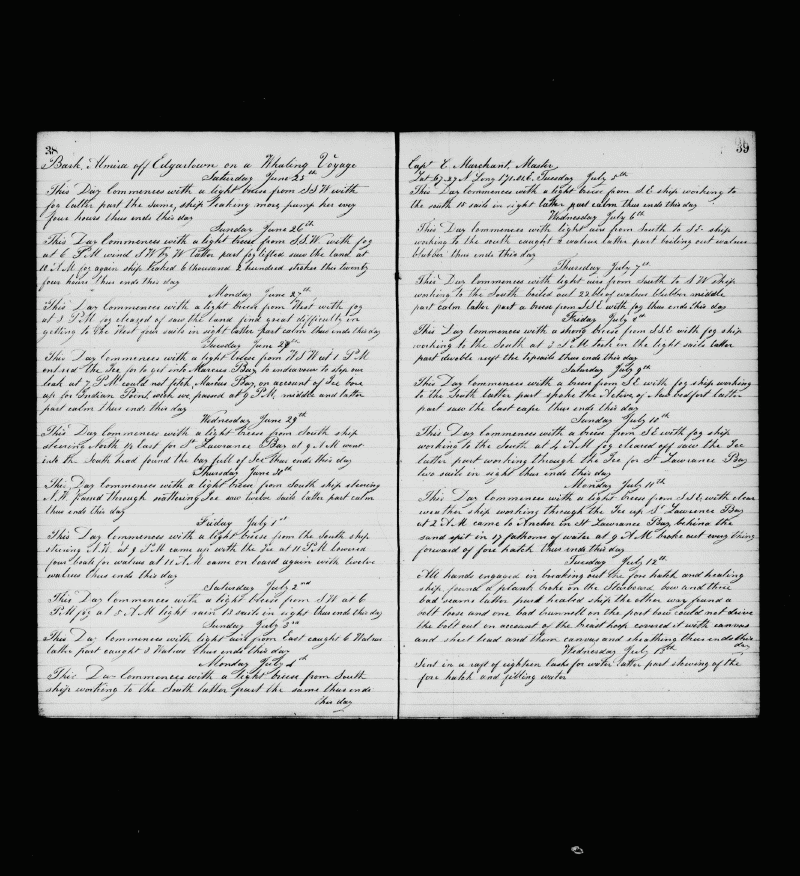 38
Bark Almira off Edgartown on a Whaling Voyage
Saturday June 25th
This Day Commences with a light breese from S.S.W with
fog latter part the same, ship leaking more, pump her evry
four hours thus ends this day
Sunday June 26th
This Day Commences with a light breese from S.S.W. with fog
at 6 P.M wind S.W by W latter part fog lifted saw the land at
12 A.M fog again ship leaked 6 thousand 2 hundred strokes this twenty
four hours thus ends this day
Monday June 27th
This Day Commences with a light breese from West with fog
at 8 P.M fog cleared of saw the land find great difficulty in
getting to the West four sails in sight latter part calm thus ends this day
Tuesday June 28th
This Day Commences with a light breese from W.S.W at 1 P.M
entered the Ice for to get into Marcus Bay to endeavour to stop our
leak at 7 P.M could not fetch Marcus Bay on account of Ice bore
up for Indian Point, wich we passed at 9 P.M. middle and latter
part calm thus ends this day
Wednesday June 29th
This Day Commences with a light breese from South ship
steering North 1/2 East for St Lawrance Bay at 9 A.M went
into the South head found the bay full of Ice thus ends this day
Thursday June 30th
This Day Commences with a light breese from South ship steering
N.W. passed through scattering Ice saw twelve sails latter part calm
thus ends this day
Friday July 1st
This Day Commences with a light breese from the South ship
steering N.W. at 9 P.M came up with the Ice at 11 P.M lowered
four boats for walrus at 11 A.M came on board again with twelve
walrus thus ends this day
Saturday July 2nd
This Day Commences with a light breese from S.W at 6
P.M fog at 5 A.M light rain 13 sails in sight thus ends this day
Sunday July 3rd
This Day Commences with light airs from East caught 6 Walrus
latter part caught 3 Walrus thus ends this day
Monday July 4th
This Day Commences with a light breese from South
ship working to the South latter part the same thus ends
this day
39
Capt C. Marchant, Master,
Lat 67.27 N Long 171.26. Tuesday July 5th
This Day Commences with a light breese from S.E. ship working to
the south 15 sails in sight latter part calm thus ends this day
Wednesday July 6th
This Day Commences with light airs from South to S.E. ship
working to the south caught 2 walrus latter part boiling out walrus
blubber thus ends this day
Thursday July 7th
This Day Commences with light airs from South to S W ship
working to the South boiled out 22 bbls of walrus blubber middle
part calm latter part a breese from S.S.E with fog thus ends this day
Friday July 8th
This Day Commences with a strong breese from S.S.E with fog ship
working to the South at 3 P.M took in the light sails latter
part double reeft the topsails thus ends this day
Saturday July 9th
This Day Commences with a breese from S.E. with fog ship working
to the South latter part spoke the Active of New bedfort latter
part saw the East cape thus ends this day
Sunday July 10th
This Day Commences with a breese from S.E with fog ship
working to the South at 4 A.M fog cleared off saw the Ice
latter part working through the Ice for St Lawrance Bay
two sails in sight thus ends this day
Monday July 11th
This Day Commences with a light breese from S.S.E. with clear
weather ship working through the Ice up St Lawrence Bay
at 2 A.M came to Anchor in St Lawrance Bay behind the
sand spit in 17 fathoms of water at 9 A.M broke out every thing
forward of fore hatch thus ends this day
Tuesday July 12th
All hands engaged in breaking out the fore hatch and heeling
ship found a plank broke on the Starboard bow and three
bad seams latter part healed ship the other way found a
bolt loose and one bad trunnell on the port bow could not drive
the bolt out on account of the breast hoop covered it with canvas
and sheet lead and them canvas and sheathing thus ends this
day
Wednesday July 13th
Sent in a raft of eighteen casks for water latter part stowing of the
fore hatch and filling water